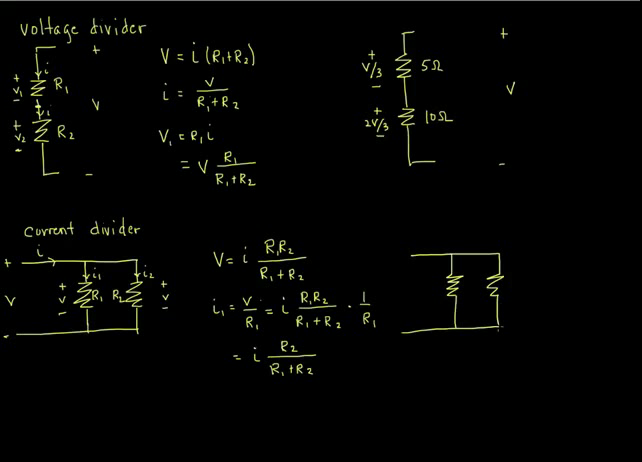 voltage divider
+
i
+
V₁
-
R₁
i
+
V₂
-
R₂
V
-
V = i (R₁+R₂)
i = V / (R₁+R₂)
V₁ = R₁ i
= V R₁ / (R₁+R₂)
+
+
V/3
-
5Ω
V
+
2V/3
-
10Ω
-
current divider
i
+
V
-
i₁
+
V
-
R₁
R₂
i₂
+
V
-
V = i R₁R₂ / (R₁+R₂)
i₁ = V/R₁ = i R₁R₂ / (R₁+R₂) · 1/R₁
= i R₂ / (R₁+R₂)